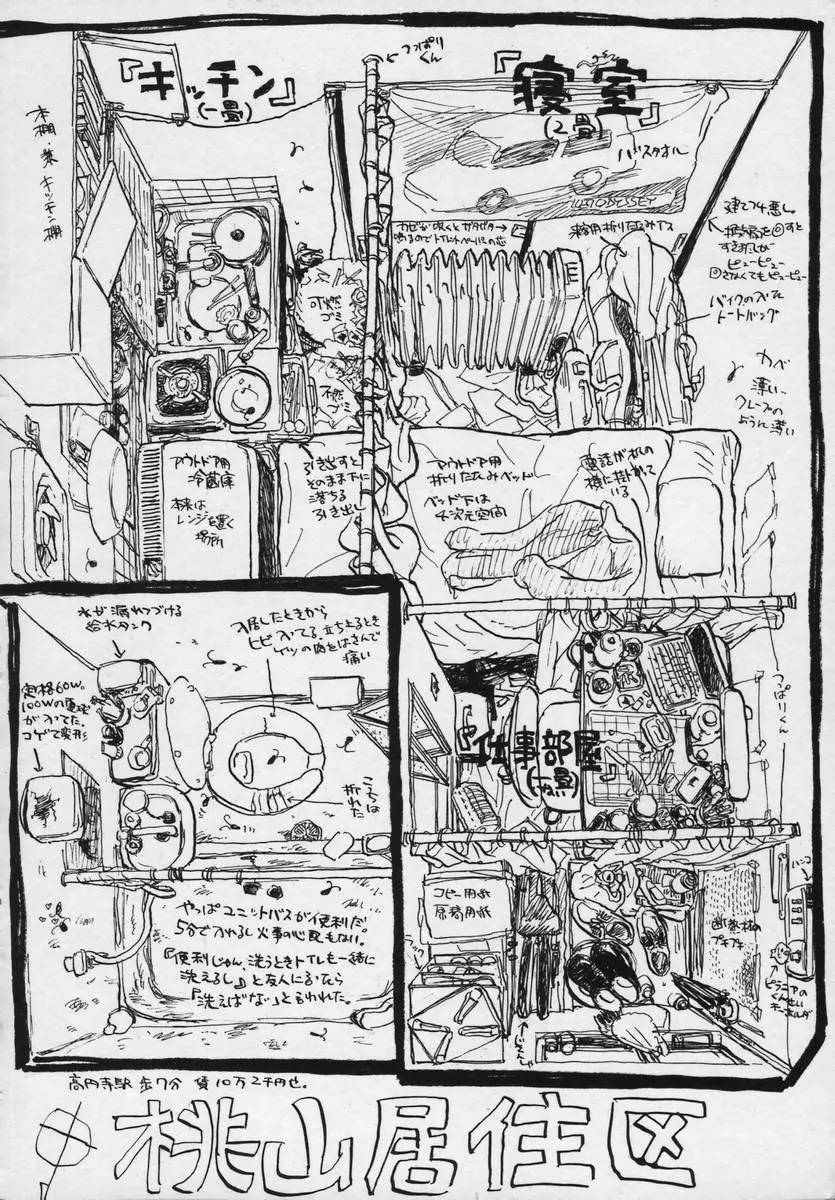 『キッチン』
(一畳)
つっぱり
くん
『寝室』
(2畳)
本棚・兼・キッチン棚
バスタオル
カゼが吹くとガタガタ
鳴るのでトイレットペーパーの芯
来客用折りたたみイス
建てつけ悪し。
すき間風が
ピューピュー
さなくてもピューピュー
バイクの入った
トートバッグ
カベ
薄い、
クレープの
ように薄い
可燃
ゴミ
不燃
ゴミ
アウトドア用
冷蔵庫
本来は
レンジを置く
場所
引き出すと
そのまま下に
落ちる
引き出し
アウトドア用
折りたたみベッド
ベッド下は
4次元空間
電話が机の
横に掛かって
いる
水が漏れつづける
給水タンク
入居したときから
ヒビ入ってる。立ち上るとき
ケツの肉をはさんで
痛い
定格60W。
100Wの電球
が入ってた。
コゲて変形
こっちは
折れた
つっぱりくん
『仕事部屋』
やっぱユニットバスが便利だ
5分で入れるし火事の心配もない。
『便利じゃん、洗うときトイレも一緒に
洗えるし』と友人に言ったなら
『洗えばな』と言われた。
コピー用紙
原稿用紙
断熱材の
プチプチ
ハンコ
ピラニアの
くん出し
キーホルダー
高円寺駅 歩7分 賃10万2千円也。
桃山居住区